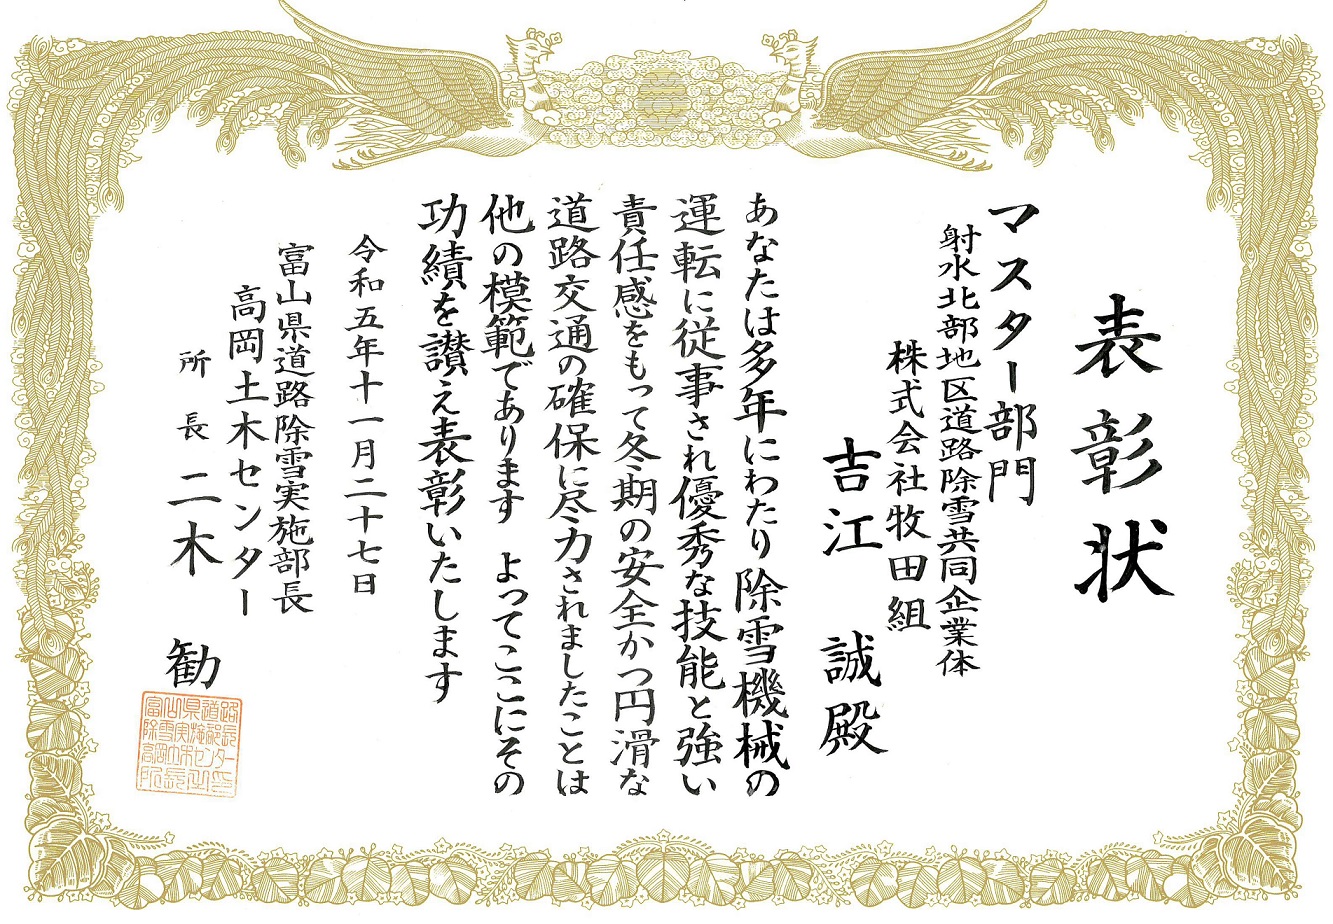 表彰状
マスター部門
射水北部地区道路除雪共同企業体
株式会社牧田組
吉江 誠殿
あなたは多年にわたり除雪機械の
運転に従事され優秀な技能と強い
責任感をもって冬期の安全かつ円滑な
道路交通の確保に尽力されましたことは
他の模範であります よってここにその
功績を讃え表彰いたします
令和五年十一月二十七日
富山県道路除雪実施部長
高岡土木センター
所長 二木 勧
富山県道路
除雪実施部長
高岡土木センター
所長之印